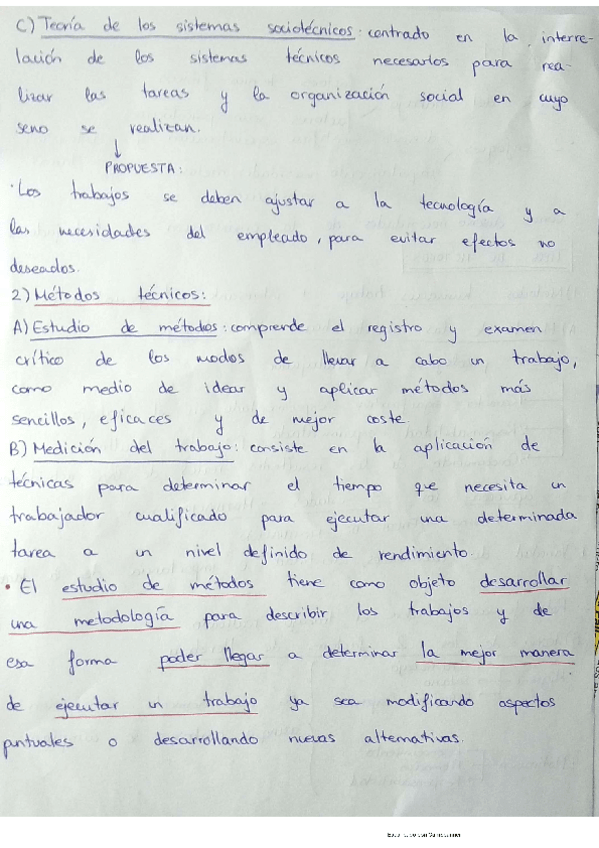 C) Teoría de los sistemas sociotécnicos: centrado en la interre-
lación de los sistemas técnicos necesarios para rea-
lizar las tareas y la organización social en cuyo
seno se realizan.
↓
PROPUESTA:
·Los trabajos se deben ajustar a la tecnología y a
las necesidades del empleado, para evitar efectos no
deseados.
2) Métodos técnicos:
A) Estudio de métodos: comprende el registro y examen
crítico de los modos de llevar a cabo un trabajo,
como medio de idear y aplicar métodos más
sencillos, eficaces y de mejor coste.
B) Medición del trabajo: consiste en la aplicación de
técnicas para determinar el tiempo que necesita un
trabajador cualificado para ejecutar una determinada
tarea a un nivel definido de rendimiento.
• El estudio de métodos tiene como objeto desarrollar
una metodología para describir los trabajos y de
esa forma poder llegar a determinar la mejor manera
de ejecutar un trabajo ya sea modificando aspectos
puntuales o desarrollando nuevas alternativas.